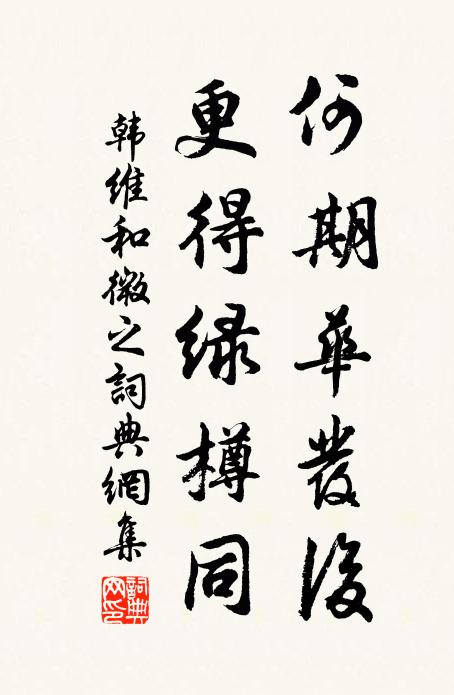 何期華發後
更得緑樽同
韩維和微之詞典網集
詞典网印